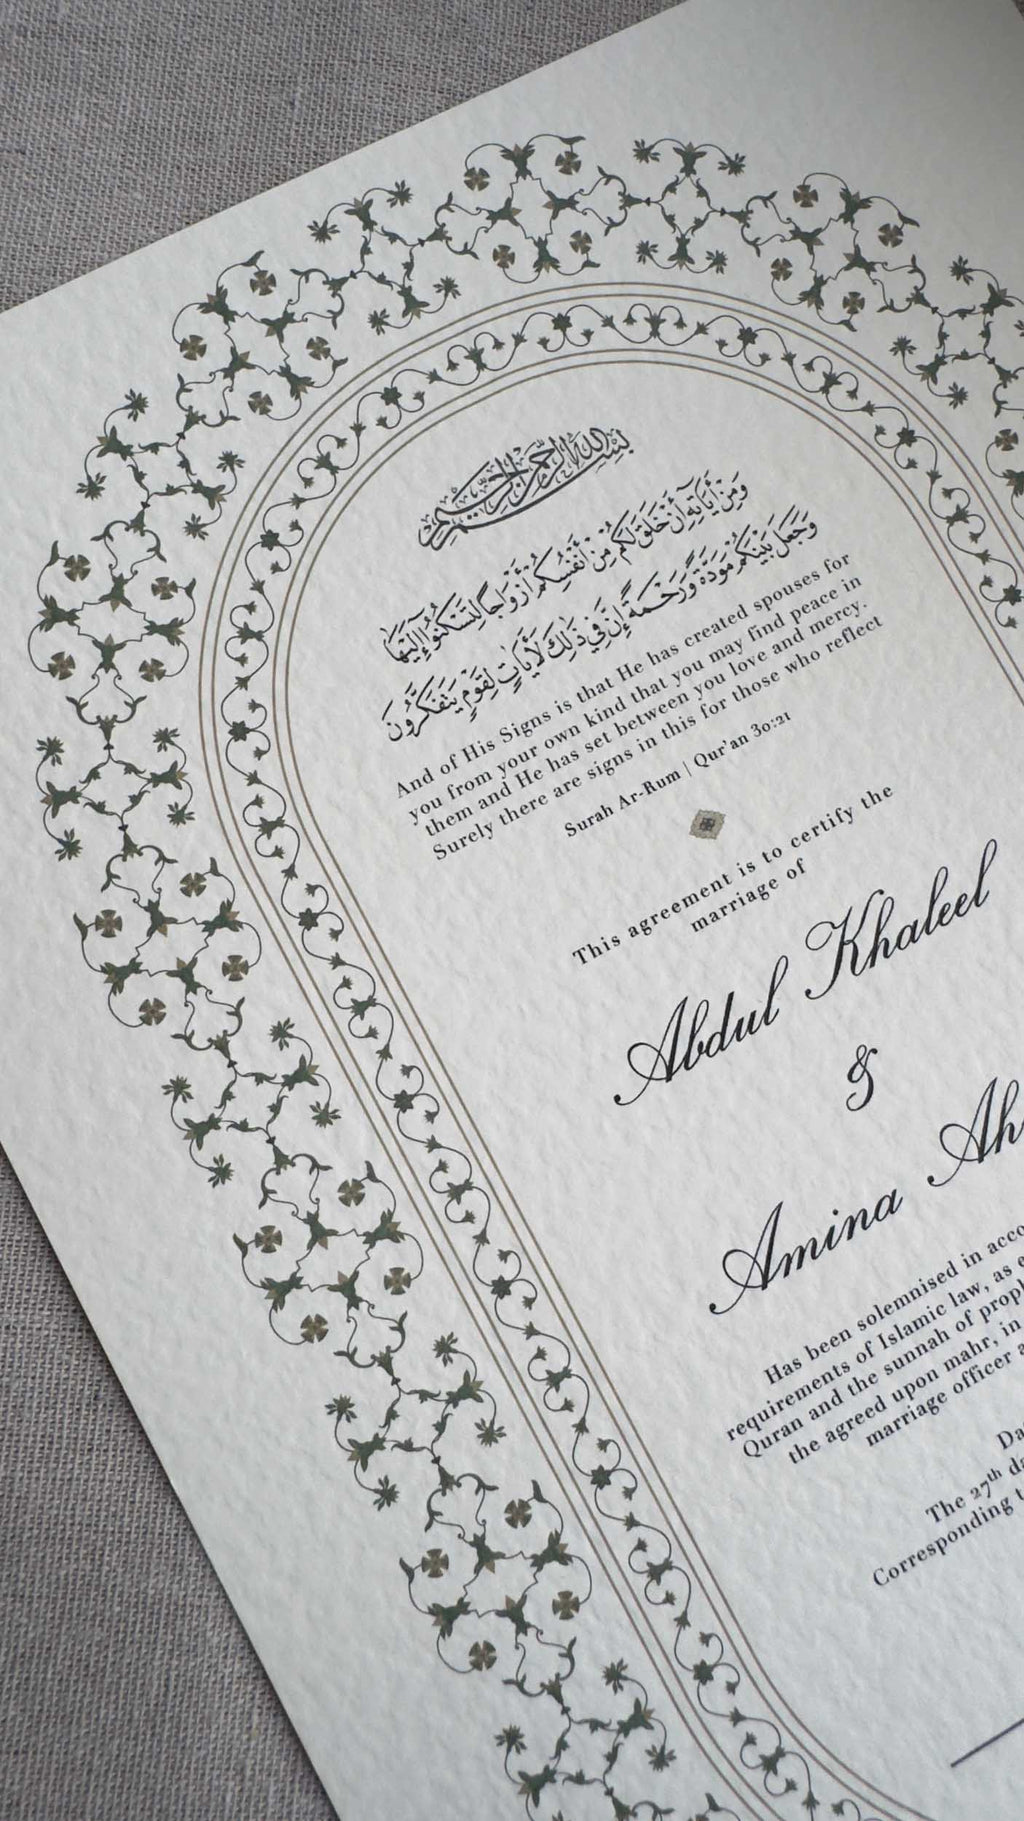 بسم الله الرحمن الرحيم
وَمِنْ أَيَاتِهِ أَنْ خَلَقَ لَكُمْ مِنْ أَنْفُسِكُمْ أَزْوَاجًا لِتَسْكُنُوا إِلَيْهَا
وَجَعَلَ بَيْنَكُمْ مَوَدَّةً وَرَحْمَةً إِنَّ فِي ذَلِكَ لَأَيَاتٍ لِقَوْمٍ يَتَفَكَّرُونَ
And of His Signs is that He has created spouses for
you from your own kind that you may find peace in
them and He has set between you love and mercy.
Surely there are signs in this for those who reflect
Surah Ar-Rum | Qur'an 30:21
This agreement is to certify the
marriage of
Abdul Khaleel
&
Amina Ah
Has been solemnised in acco
requirements of Islamic law, as e
Quran and the sunnah of proph
the agreed upon mahr, in
marriage officer a
Da
The 27th da
Corresponding t